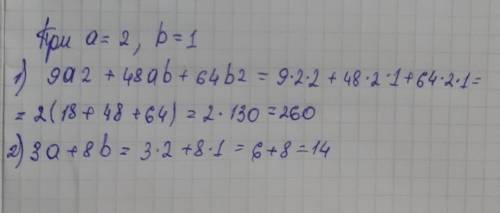 При a=2, b=1
1) 9a2 + 48ab + 64b2 = 9·2·2 + 48·2·1 + 64·2·1 =
= 2(18 + 48 + 64) = 2·130 = 260
2) 3a + 8b = 3·2 + 8·1 = 6+8 = 14